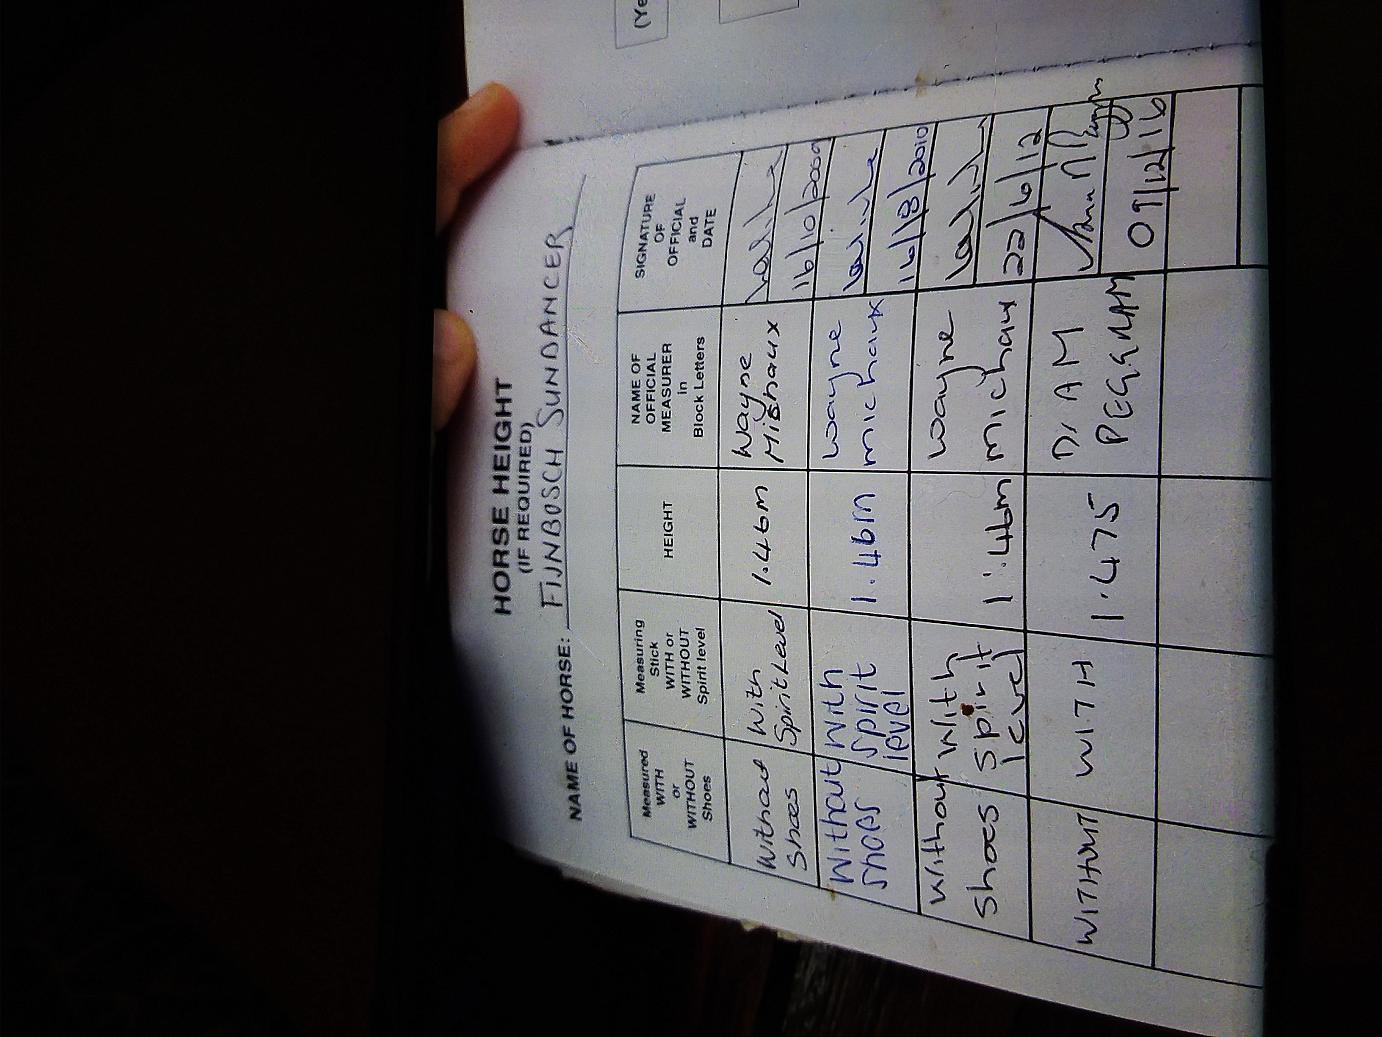 (Ye
HORSE HEIGHT
(IF REQUIRED)
NAME OF HORSE: FIJNBOSCH SUNDANCER
Measured
WITH
or
WITHOUT
Shoes
Measuring
Stick
WITH or
WITHOUT
Spirit level
HEIGHT
NAME OF
OFFICIAL
MEASURER
in
Block Letters
SIGNATURE
OF
OFFICIAL
and
DATE
Without
Shoes
With
Spirit Level
1.46m
Wayne
Michaux
16/10/2009
Without
shoes
With
spirit
level
1.46m
Wayne
michaux
16/8/2010
Without
shoes
With
spirit
level
1.46m
Wayne
michaux
22/6/12
WITHOUT
WITH
1.475
DIAM
PEGGRAM
09/12/16